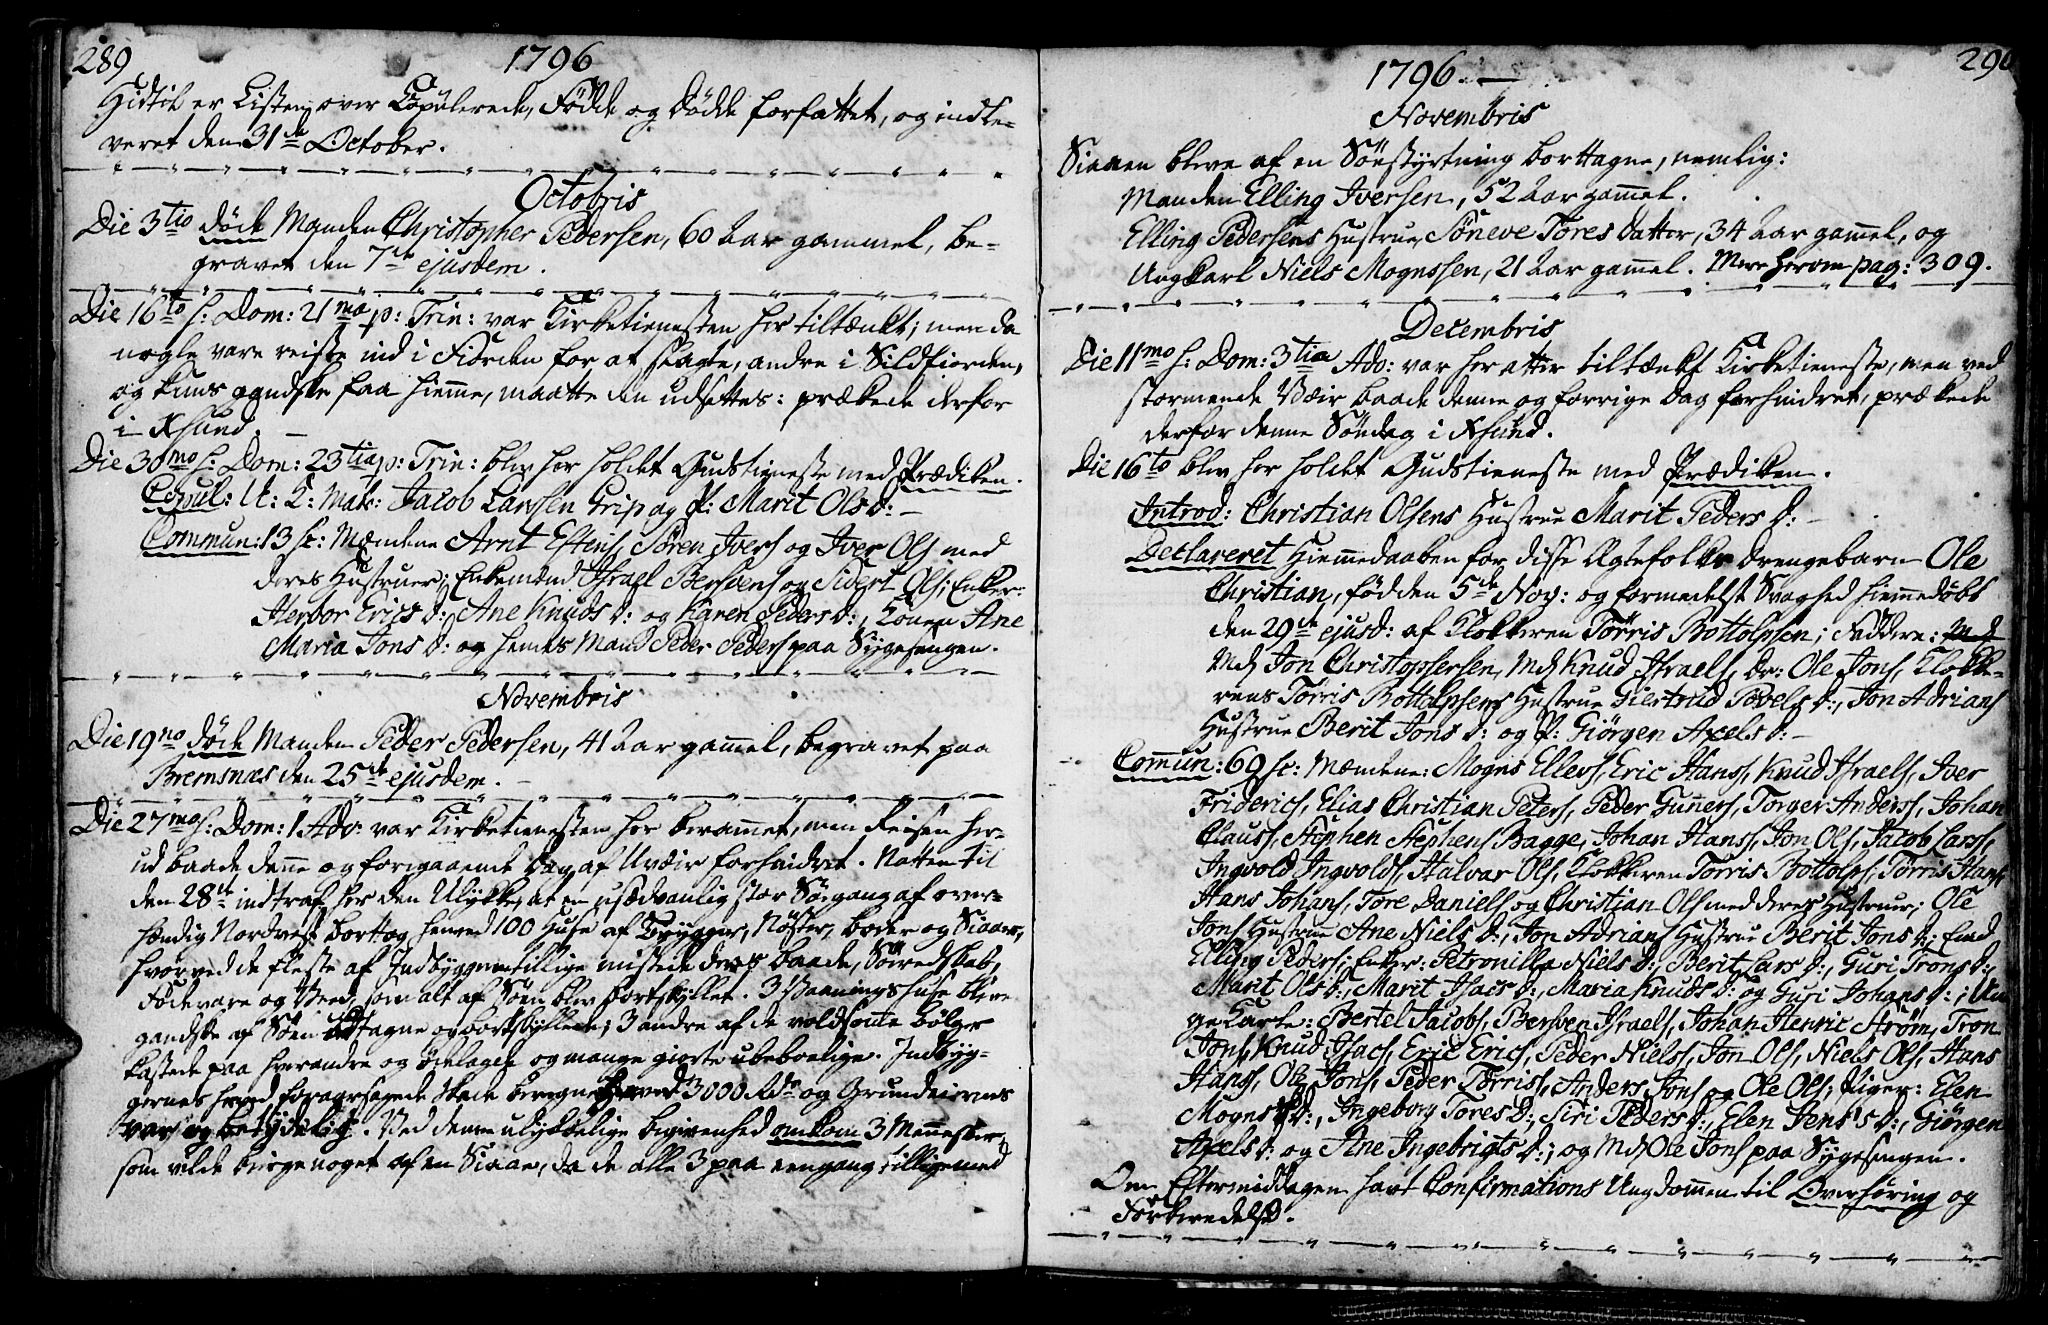 289 1796
Hidtil er Listen over Copulerede, Fødde og Dødde forfattet, og indle-
veret den 31de October.
Octobris
Die 3tio døde Manden Christopher Pedersen, 60 Aar gammel, be-
gravet den 7de ejusdem.
Die 16to s: Dom: 21ma p: Trin: var Kirketienesten her tiltænkt; men da
nogle vare reiste ind i Fiorden for at slagte, andre i Sildfiorden,
og kuns gandske faa hiemme, maatte den udsættes: prækede derfor
i Xsund.
Die 30mo s: Dom: 23tia p: Trin: blev her holdet Gudstieneste med Prædiken.
Copul: U: K: Matr: Jacob Larssen Grip og P: Marit Olsd:
Commun: 13 sc: Mændene Arnt Estens, Sören Ivers og Iver Ols med
deres Hustruer; Enkemænd Israel Bersvens og Sivert Ols; Enker:
Herbor Erics d:, Ane Knuds d: og Karen Peders d:, Konen Ane
Maria Jons d: og hendes Mand Peder Peders paa Sygesengen.
Novembris
Die 19no døde Manden Peder Pedersen, 41 Aar gammel, begravet paa
Bremsnæs den 25de ejusdem.
Die 27mo s: Dom: 1 Adv: var Kirketienesten her berammet, men Reisen her-
ud baade denne og forrigaaende Dag af Uveir forhindret. Natten til
den 28de indtraf her den Ulykke, at en usædvanlig stor Søegang af over-
hændig Nordvest borttog henved 100 Huse af Brygger, Nöster, boder og Siaaer,
hvorved de fleste af Indbyggerne tillige mistede deres Baade, Söeredskab,
Födevare og Veed, som alt af Söen blev bortskyllet. 3 Vaaningshuse bleve
gandske af Söen borttagne og bortskyllede; 3 andre af de voldsomme bølger
kastede paa hverandre og ödelagte og mange giorte ubeboelige. Indbyg-
gernes herved foraarsagede Skade beregnes henved 3000 Rdr og Grundeiernes
var og betydelig. Ved denne ulykkelige begivenhed omkom 3 Mennesker,
som vilde bierge noget af en Siaae, da de alle 3 paa eengang tilligemed
290
1796
Novembris
Siaaen bleve af en Söestyrtning borttagne, nemlig:
Manden Elling Iversen, 52 Aar gammel.
Elling Pedersens Hustrue Söneve Tores datter, 34 Aar gammel, og
Ungkarl Niels Mogenssen, 21 Aar gammel. Mere herom pag: 309.
Decembris
Die 11mo s: Dom: 3tia Adv: var her atter tiltænkt Kirketieneste, men ved
stormende Væir baade denne og forrige Dag forhindret, prækede
derfor denne Söndag i Xsund.
Die 16to blev her holdet Gudstieneste med Prædiken.
Introd: Christian Olsens Hustrue Marit Peders d:
Declareret Hiemmedaaben for disse Ægtefolks Drengebarn Ole
Christian, fød den 5te Nov: og formedelst Svaghed hiemmedøbt
den 29de ejusd: af Klokkeren Törris Bottolphsen; Faddere:
Md Jon Christophersen, Md Knud Israels, Dr: Ole Jons, Klokke-
rens Törris Bottolphsens Hustrue Giertrud Povels d:, Jon Adrians
Hustrue Berit Jons d: og P: Giörgen Axels d:
Comun: 69 sc: Mændene: Mogns Ellevs, Eric Hans, Knud Israels, Iver
Friderics, Elias Christian Peters, Peder Gunners, Torger Anderss, Johan
Clauss, Stephen Stephens Bagge, Johan Hanss, Jon Ols, Jacob Larss,
Ingvold Ingvolds, Halvar Ols, Klokkeren Törris Bottolphs, Törris Hans
Hans Johans, Tore Daniels og Christian Ols med deres Hustruer; Ole
Jons Hustrue Ane Niels d:, Jon Adrians Hustrue Berit Jons d:; Emd
Elling Peders; Enker: Petronilla Niels d:, Berit Lars d:, Guri Trons d:,
Marit Ols d:, Marit Isacs d:, Maria Knuds d: og Guri Johans d:; Un
ge Karle: Bertel Jacobs, Bersven Israels, Johan Henric Strøm, Tron
Jons, Knud Isacs, Eric Erics, Peder Nielss, Jon Ols, Niels Ols, Hans
Hanss, Ole Jons, Peder Törriss, Anders Jons og Ole Ols; Piger: Elen
Mogns d:, Ingeborg Tores d:, Siri Peders d:, Elen Jens's d:, Giörgen
Axels d: og Ane Ingebrigts d:; og Md Ole Jons paa Sygesengen.
Om Eftermiddagen havt Confirmations Ungdommen til Overhøring og
Forberedelse.